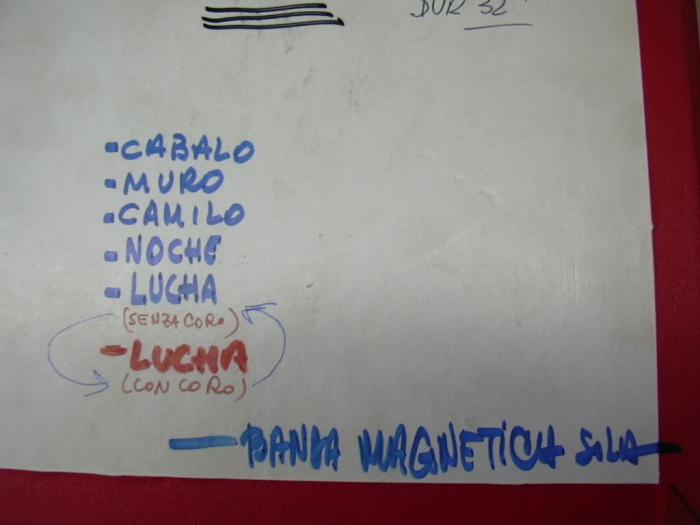 DUR 32"
- CABALO
- MURO
- CAMILO
- NOCHE
- LUCHA
(SENZA CORO)
- LUCHA
(CON CORO)
— BANDA MAGNETICA SOLA —